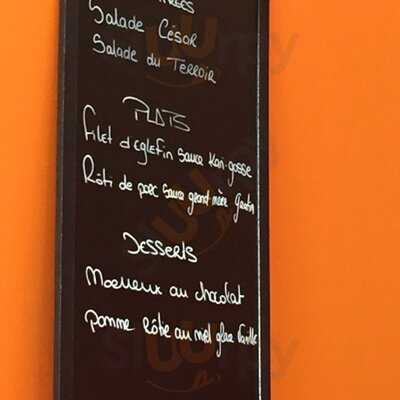 Salade César
Salade du Terroir
PLATS
Filet d'eglefin sauce Kari-gosse
Rôti de porc sauce grand mère Gratin
DESSERTS
Moelleux au chocolat
pomme rôtie au miel glace Vanille